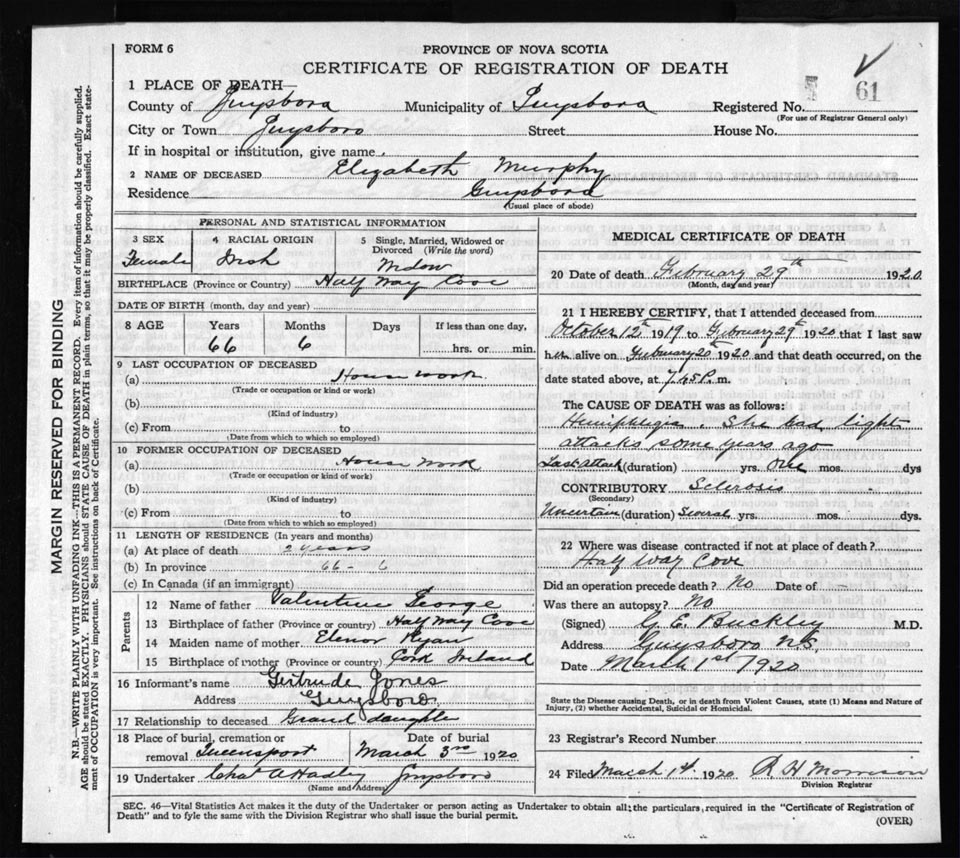 FORM 6
PROVINCE OF NOVA SCOTIA
CERTIFICATE OF REGISTRATION OF DEATH
1 PLACE OF DEATH
County of Guysboro Municipality of Guysboro Registered No. 61
(For use of Registrar General only)
City or Town Guysboro Street House No.
If in hospital or institution, give name
2 NAME OF DECEASED Elizabeth Murphy
Residence Guysboro
(Usual place of abode)
PERSONAL AND STATISTICAL INFORMATION
3 SEX 4 RACIAL ORIGIN 5 Single, Married, Widowed or Divorced (Write the word)
Female Irish Widow
BIRTHPLACE (Province or Country) Half Way Cove
DATE OF BIRTH (month, day and year)
8 AGE Years Months Days If less than one day,
66 6 hrs. or min.
9 LAST OCCUPATION OF DECEASED
(a) House work
(Trade or occupation or kind or work)
(b)
(Kind of industry)
(c) From to
(Date from which to which so employed)
10 FORMER OCCUPATION OF DECEASED
(a) House work
(Trade or occupation or kind of work)
(b)
(Kind of industry)
(c) From to
(Date from which to which so employed)
11 LENGTH OF RESIDENCE (In years and months)
(a) At place of death 2 years
(b) In province 66 - 6
(c) In Canada (if an immigrant)
Parents
12 Name of father Valentine George
13 Birthplace of father (Province or country) Half Way Cove
14 Maiden name of mother Elenor Ryan
15 Birthplace of mother (Province or country) Cork Ireland
16 Informant's name Gertrude Jones
Address Guysboro
17 Relationship to deceased Grand daughter
18 Place of burial, cremation or removal Queensport Date of burial March 3rd 1920
19 Undertaker Chas A Hadley Guysboro
(Name and Address)
MEDICAL CERTIFICATE OF DEATH
20 Date of death February 29th 1920
(Month, day and year)
21 I HEREBY CERTIFY, that I attended deceased from
October 12th 1919 to February 29th 1920 that I last saw
her alive on February 20th 1920 and that death occurred, on the
date stated above, at 7.45 P. m.
The CAUSE OF DEATH was as follows:
Hemiplegia. She had light
attacks some years ago
Last attack (duration) yrs. one mos. dys
CONTRIBUTORY Sclerosis
(Secondary)
Uncertain (duration) Several yrs. mos. dys.
22 Where was disease contracted if not at place of death?
Half Way Cove
Did an operation precede death? No Date of -
Was there an autopsy? No
(Signed) G. E. Buckley M.D.
Address Guysboro N.S.
Date March 1st 1920
State the Disease causing Death, or in death from Violent Causes, state (1) Means and Nature of
Injury, (2) whether Accidental, Suicidal or Homicidal.
23 Registrar's Record Number
24 Filed March 1st 1920 R H Morrison
Division Registrar
SEC. 46—Vital Statistics Act makes it the duty of the Undertaker or person acting as Undertaker to obtain all the particulars required in the "Certificate of Registration of
Death" and to fyle the same with the Division Registrar who shall issue the burial permit.
(OVER)
MARGIN RESERVED FOR BINDING
N.B.—WRITE PLAINLY WITH UNFADING INK—THIS IS A PERMANENT RECORD. Every item of information should be carefully supplied.
AGE should be stated EXACTLY. PHYSICIANS should STATE CAUSE OF DEATH in plain terms, so that it may be properly classified. Exact state-
ment of OCCUPATION is very important. See instructions on back of Certificate.